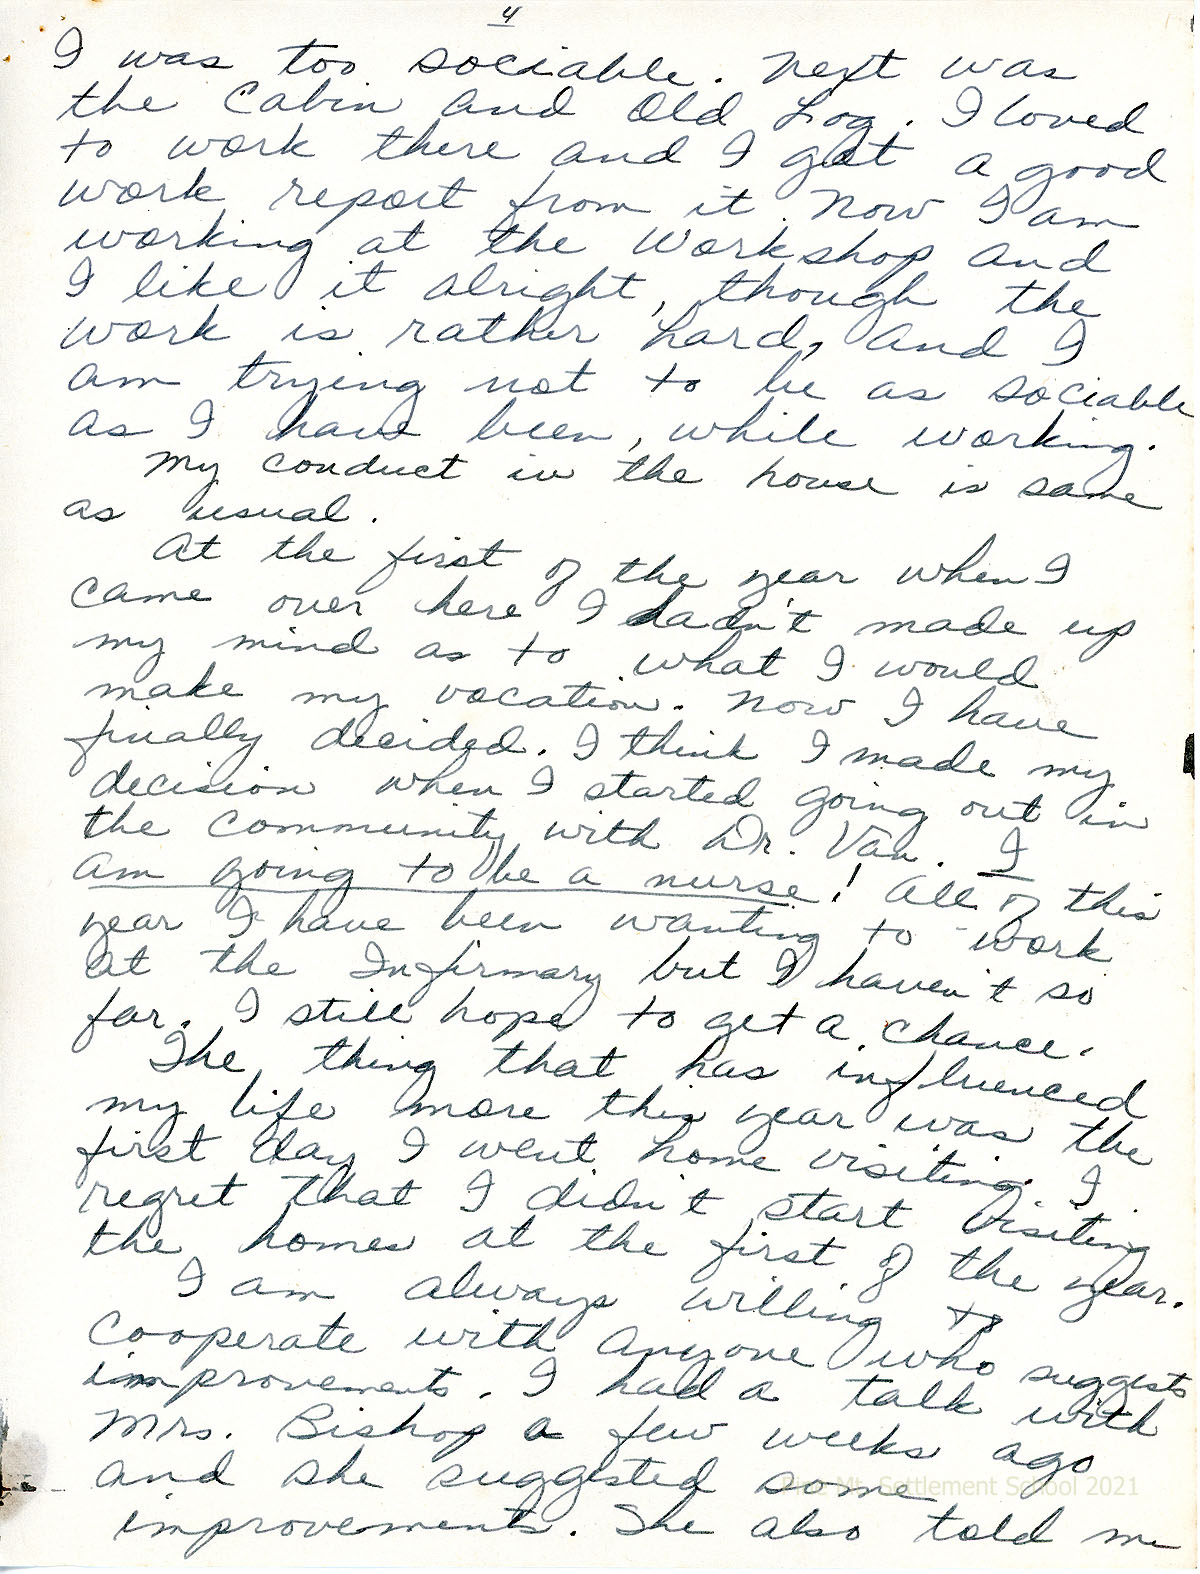 4
I was too sociable. Next was
the Cabin and Old Log. I loved
to work there and I got a good
work report from it. Now I am
working at the Workshop and
I like it alright, though the
work is rather hard, and I
am trying not to be as sociable
as I have been, while working.
My conduct in the house is same
as usual.
At the first of the year when I
came over here I hadn't made up
my mind as to what I would
make my vocation. Now I have
finally decided. I think I made my
decision when I started going out in
the community with Dr. Van. I
am going to be a nurse! All of this
year I have been wanting to work
at the Infirmary but I haven't so
far. I still hope to get a chance.
The thing that has influenced
my life more this year was the
first day I went home visiting. I
regret that I didn't start visiting
the homes at the first of the year.
I am always willing to
cooperate with anyone who suggests
improvements. I had a talk with
Mrs. Bishop a few weeks ago
and she suggested some
Pine Mt. Settlement School 2021
improvements. She also told me